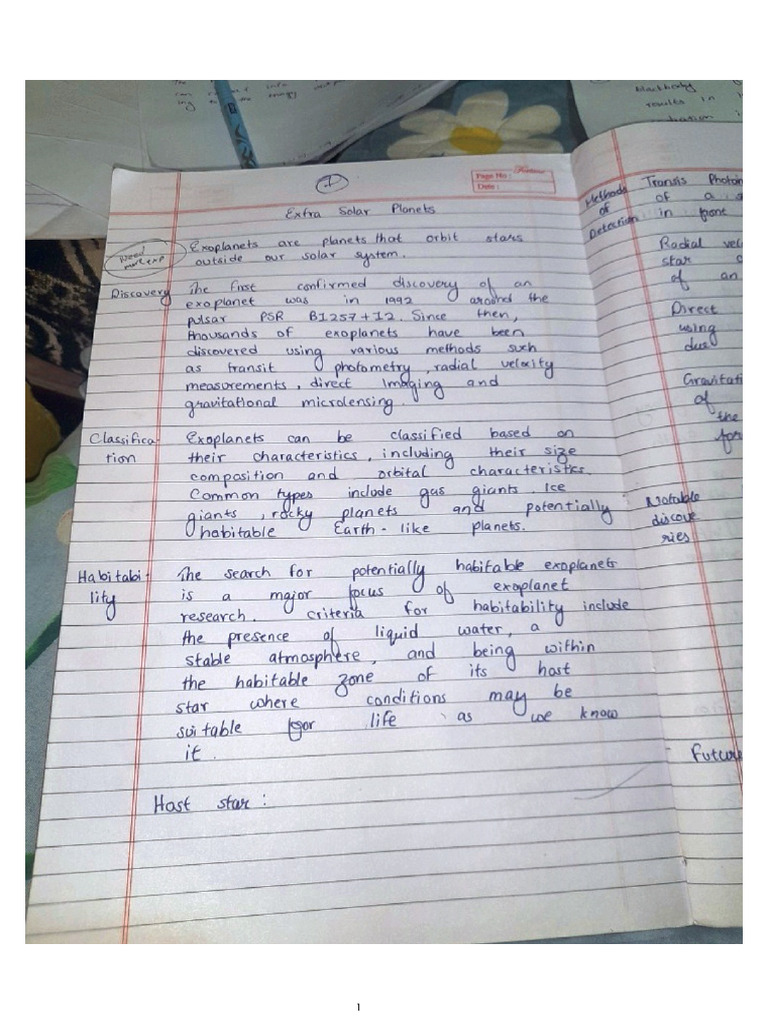 Page No:
Date:
Extra Solar Planets
need more exp
Exoplanets are planets that orbit stars
outside our solar system.
Discovery
The first confirmed discovery of an
exoplanet was in 1992 around the
pulsar PSR B1257+12. Since then,
thousands of exoplanets have been
discovered using various methods such
as transit photometry, radial velocity
measurements, direct Imaging and
gravitational microlensing.
Classifica-
tion
Exoplanets can be classified based on
their characteristics, including their size
composition and orbital characteristics.
Common types include gas giants. Ice
giants, rocky planets and potentially
habitable Earth-like planets.
Habitabi-
lity
The search for potentially habitable exoplanets
is a major focus of exoplanet
research. criteria for habitability include
the presence of liquid water, a
stable atmosphere, and being within
the habitable zone of its host
star where conditions may be
suitable for life as we know
it.
Host star:
Methods
of
Detection
Transis Photom
of a
in front
Radial vel
star
of an
Direct
using
due
Gravitati
of
the
for
Notable
discove
ries
Future
Blackbody
results in
1